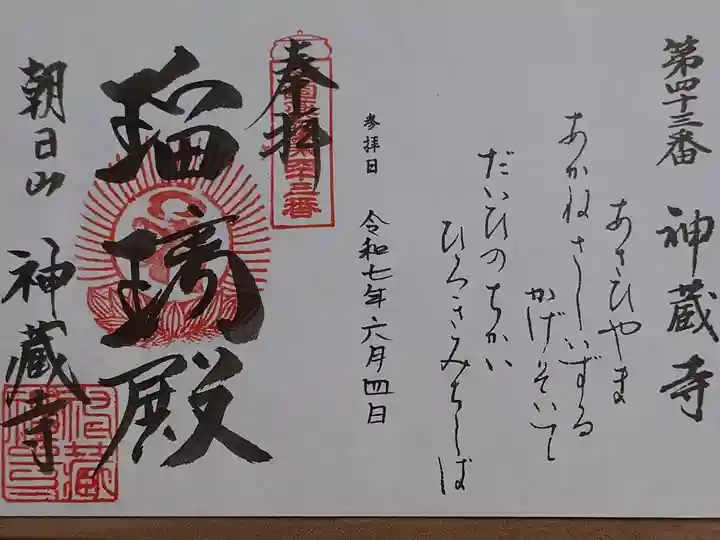 第四十三番 神蔵寺
あさひやま
あかねさしいずる
かげりそいて
だいひのちかい
ひろきみちしば
参拝日 令和七年六月四日
奉拝
瑠璃殿
朝日山 神蔵寺